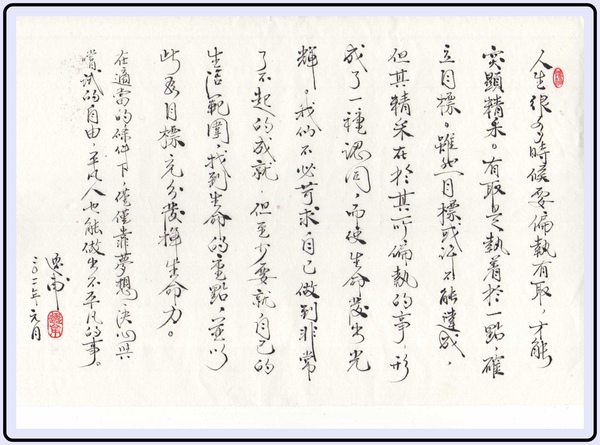 人生很多時候要偏執有取，才能
突顯精采。有取是執着於一點，確
立目標。雖然目標或許不能達成，
但其精采在於其所偏執的事，形
成了一種認同，而使生命發出光
輝。我們不必苛求自己做到非常
了不起的成就，但至少要就自己的
生活範圍，找到生命的重點，並以
此為目標充分發揮生命力。
在適當的條件下，僅僅靠夢想、決心與
嚐試的自由，平凡人也能做出不平凡的事。
年元月